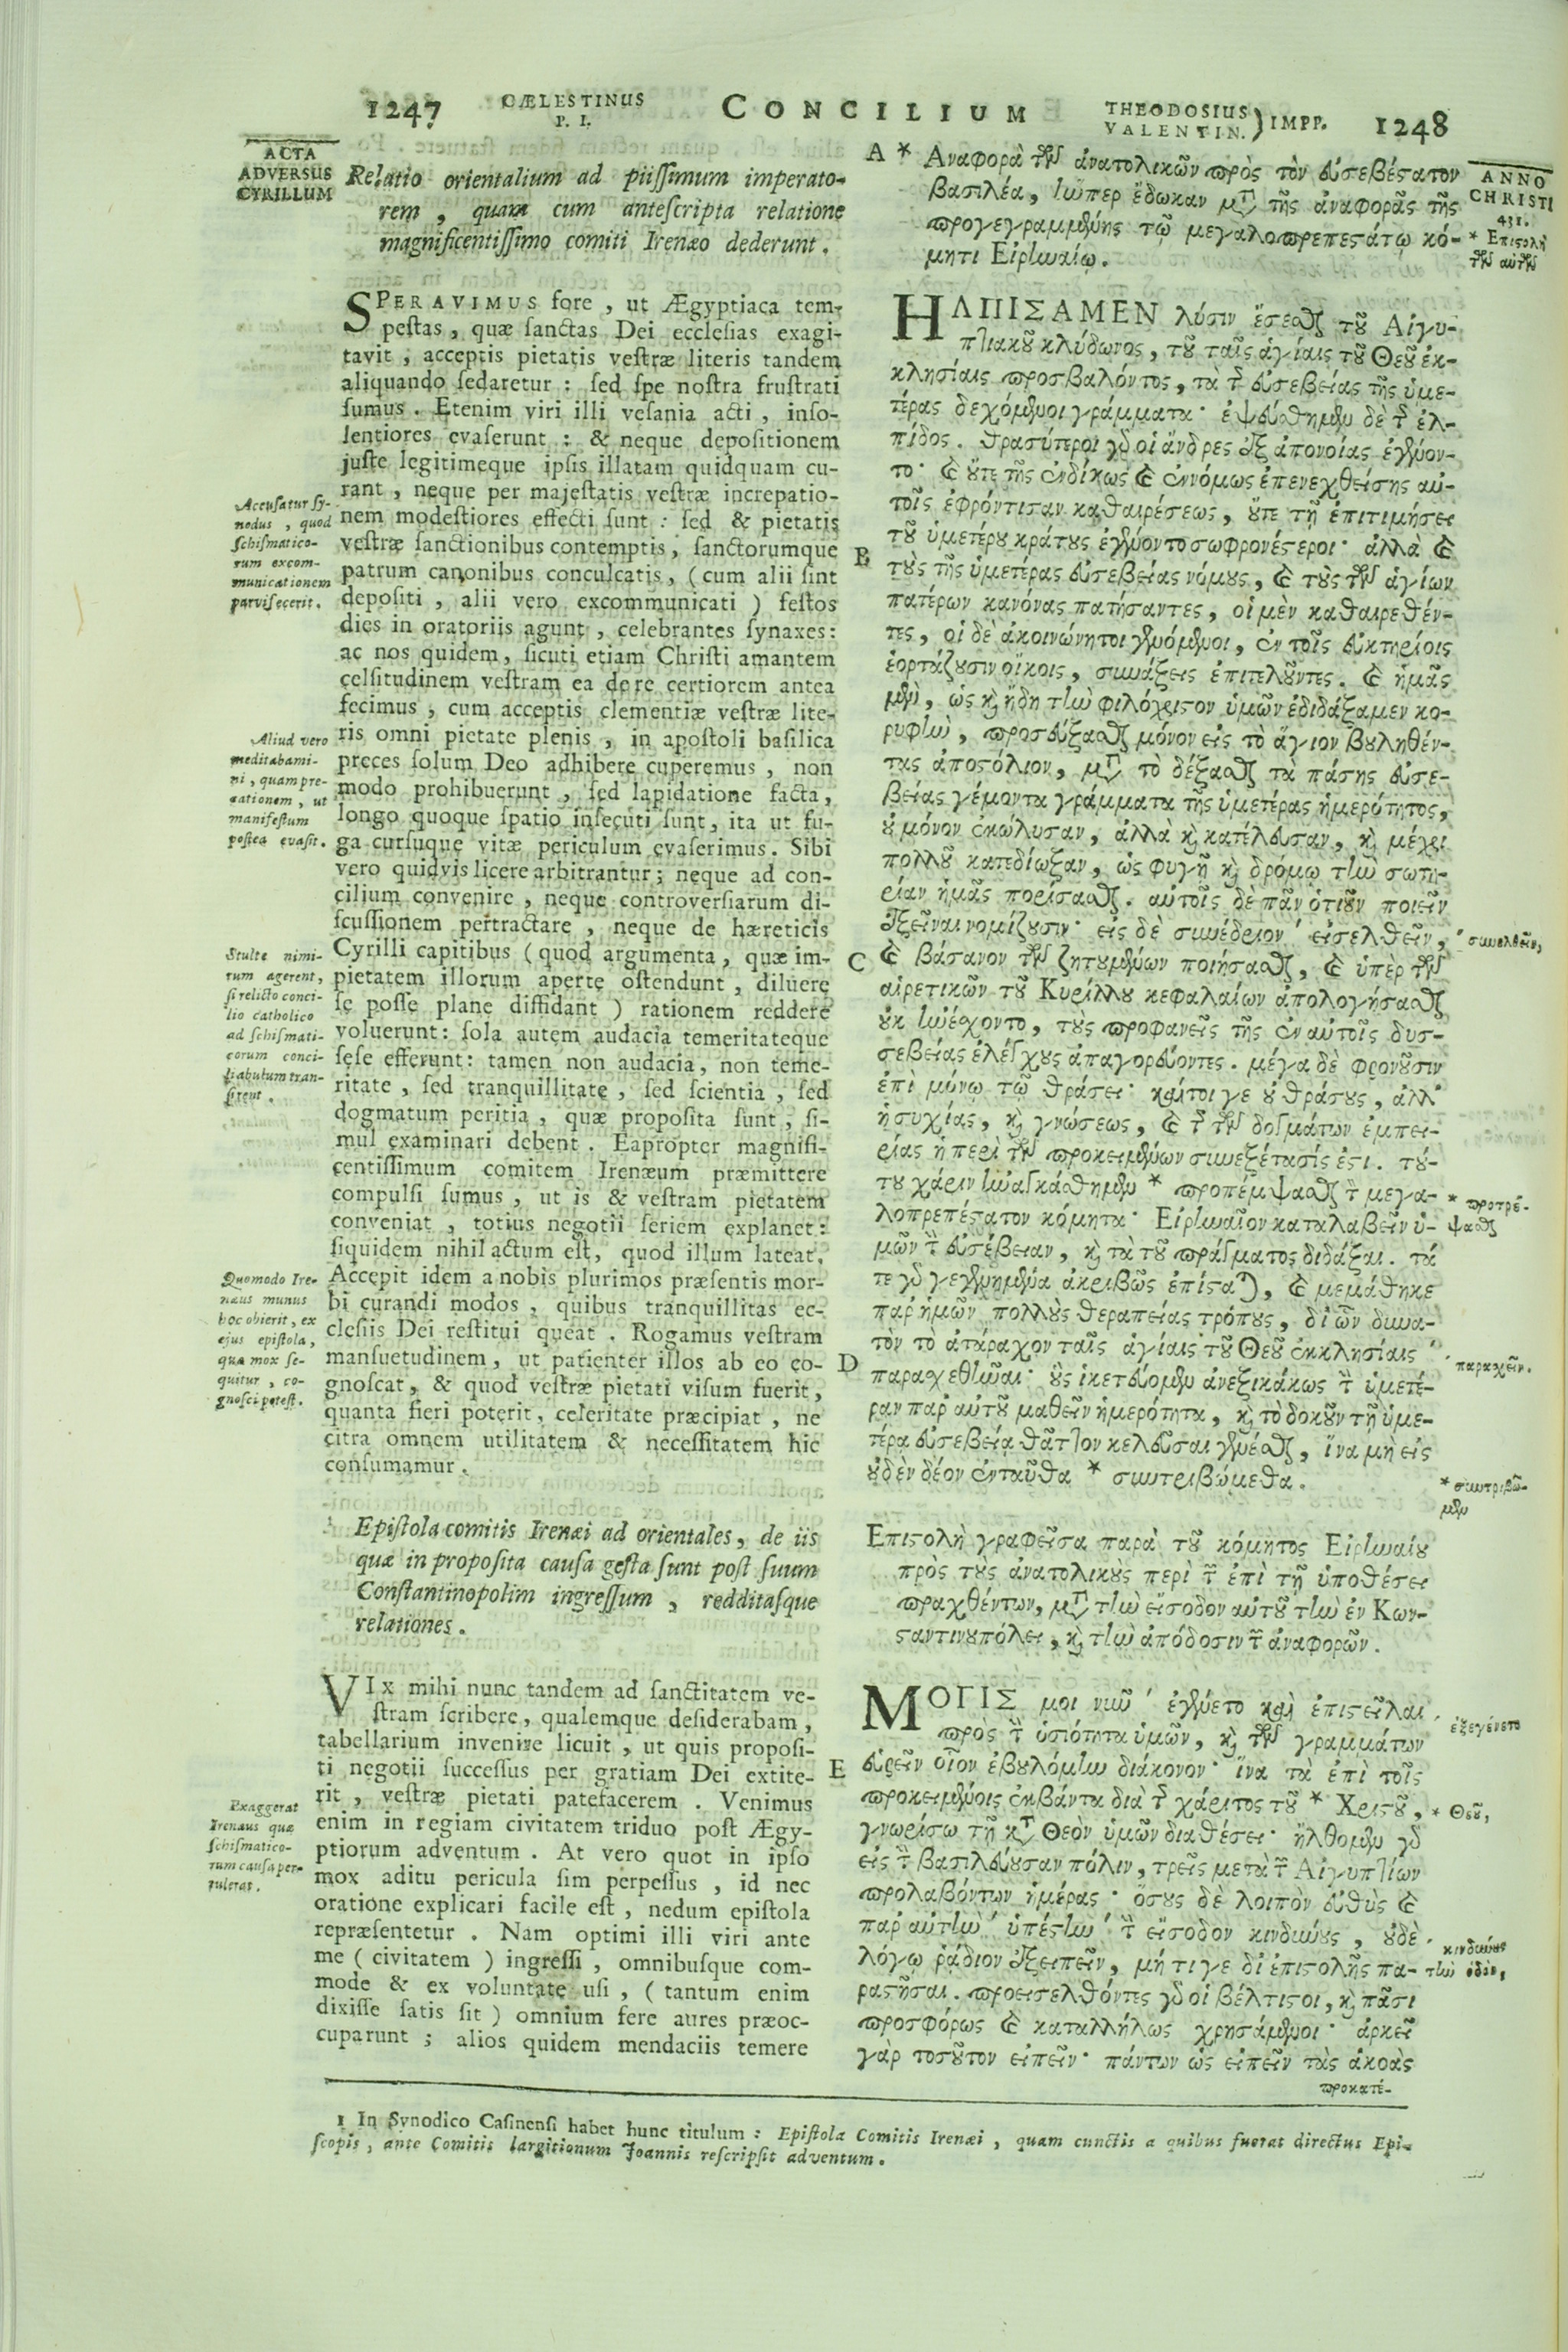 1247 CÆLESTINUS P. I. CONCILIUM THEODOSIUS VALENTIN. ) IMPP. 1248
ACTA
ADVERSUS
CYRILLUM
Relatio orientalium ad piiſſimum imperato-
rem , quam cum anteſcripta relatione
magnificentiſſimo comiti Irenæo dederunt .
SPERAVIMUS fore , ut Ægyptiaca tem-
peſtas , quæ ſanctas Dei eccleſias exagi-
tavit , acceptis pietatis veſtræ literis tandem
aliquando ſedaretur : ſed ſpe noſtra fruſtrati
ſumus . Etenim viri illi veſania acti , inſo-
lentiores evaſerunt : & neque depoſitionem
juſte legitimeque ipſis illatam quidquam cu-
rant , neque per majeſtatis veſtræ increpatio-
nem modeſtiores effecti ſunt : ſed & pietatis
veſtræ ſanctionibus contemptis , ſanctorumque
patrum canonibus conculcatis , ( cum alii ſint
depoſiti , alii vero excommunicati ) feſtos
dies in oratoriis agunt , celebrantes ſynaxes :
ac nos quidem , ſicuti etiam Chriſti amantem
celſitudinem veſtram ea de re certiorem antea
fecimus , cum acceptis clementiæ veſtræ lite-
ris omni pietate plenis , in apoſtoli baſilica
preces ſolum Deo adhibere cuperemus , non
modo prohibuerunt , ſed lapidatione facta ,
longo quoque ſpatio inſecuti ſunt , ita ut fu-
ga curſuque vitæ periculum evaſerimus . Sibi
vero quidvis licere arbitrantur ; neque ad con-
cilium convenire , neque controverſiarum di-
ſcuſſionem pertractare , neque de hæreticis
Cyrilli capitibus ( quod argumenta , quæ im-
pietatem illorum aperte oſtendunt , diluere
ſe poſſe plane diffidant ) rationem reddere
voluerunt : ſola autem audacia temeritateque
ſeſe efferunt : tamen non audacia , non teme-
ritate , ſed tranquillitate , ſed ſcientia , ſed
dogmatum peritia , quæ propoſita ſunt , ſi-
mul examinari debent . Eapropter magnifi-
centiſſimum comitem Irenæum præmittere
compulſi ſumus , ut is & veſtram pietatem
conveniat , totius negotii ſeriem explanet :
ſiquidem nihil actum eſt , quod illum lateat .
Accepit idem a nobis plurimos præſentis mor-
bi curandi modos , quibus tranquillitas ec-
cleſiis Dei reſtitui queat . Rogamus veſtram
manſuetudinem , ut patienter illos ab eo co-
gnoſcat , & quod veſtræ pietati viſum fuerit ,
quanta fieri poterit , celeritate præcipiat , ne
citra omnem utilitatem & neceſſitatem hic
conſumamur .
Accuſatur ſy-
nodus , quod
ſchiſmatico-
rum excom-
municationem
parvifecerit .
Aliud vero
meditabami-
ni , quam pre-
cationem , ut
manifeſtum
poſtea evaſit .
Stulte nimi-
rum agerent ,
ſi relicto conci-
lio catholico
ad ſchiſmati-
corum conci-
liabulum tran-
ſirent .
Quomodo Ire-
næus munus
hoc obierit , ex
ejus epiſtola ,
quæ mox ſe-
quitur , co-
gnoſci poteſt .
1 Epiſtola comitis Irenæi ad orientales , de iis
quæ in propoſita cauſa geſta ſunt poſt ſuum
Conſtantinopolim ingreſſum , redditaſque
relationes .
VIX mihi nunc tandem ad ſanctitatem ve-
ſtram ſcribere , qualemque deſiderabam ,
tabellarium invenire licuit , ut quis propoſi-
ti negotii ſucceſſus per gratiam Dei extite-
rit , veſtræ pietati patefacerem . Venimus
enim in regiam civitatem triduo poſt Ægy-
ptiorum adventum . At vero quot in ipſo
mox aditu pericula ſim perpeſſus , id nec
oratione explicari facile eſt , nedum epiſtola
repræſentetur . Nam optimi illi viri ante
me ( civitatem ) ingreſſi , omnibuſque com-
mode & ex voluntate uſi , ( tantum enim
dixiſſe ſatis ſit ) omnium fere aures præoc-
cuparunt ; alios quidem mendaciis temere
Exaggerat
Irenæus quæ
ſchiſmatico-
rum cauſa per-
tulerat .
A * Αναφορὰ τῶν ἀνατολικῶν πρὸς τὸν εὐσεβέστατον
βασιλέα, ἥνπερ ἔδωκαν μετὰ τῆς ἀναφορᾶς τῆς
προγεγραμμένης τῷ μεγαλοπρεπεστάτῳ κό-
μητι Εἰρηναίῳ .
ΗΛΠΙΣΑΜΕΝ λύσιν ἔσεσθαι τοῦ Αἰγυ-
πτιακοῦ κλύδωνος, τοῦ ταῖς ἁγίαις τοῦ Θεοῦ ἐκ-
κλησίαις προσβαλόντος, τὰ τῆς εὐσεβείας τῆς ὑμε-
τέρας δεχόμενοι γράμματα· ἐψεύσθημεν δὲ τῆς ἐλ-
πίδος. θρασύτεροι γὰρ οἱ ἄνδρες ἐξ ἀπονοίας ἐγένον-
το· καὶ οὔτε τῆς ἐνδίκως καὶ ἐννόμως ἐπενεχθείσης αὐ-
τοῖς ἐφρόντισαν καθαιρέσεως, οὔτε τῇ ἐπιτιμήσει
τοῦ ὑμετέρου κράτους ἐγένοντο σωφρονέστεροι· ἀλλὰ καὶ
B τοὺς τῆς ὑμετέρας εὐσεβείας νόμους, καὶ τοὺς τῶν ἁγίων
πατέρων κανόνας πατήσαντες, οἱ μὲν καθαιρεθέν-
τες, οἱ δὲ ἀκοινώνητοι γενόμενοι, ἐν τοῖς εὐκτηρίοις
ἑορτάζουσιν οἴκοις, συνάξεις ἐπιτελοῦντες. καὶ ἡμᾶς
μὲν, ὡς καὶ ἤδη τὴν φιλόχριστον ὑμῶν ἐδιδάξαμεν κο-
ρυφὴν, προσεύξασθαι μόνον εἰς τὸ ἅγιον βουληθέν-
τας ἀποστόλιον, μετὰ τὸ δέξασθαι τὰ πάσης εὐσε-
βείας γέμοντα γράμματα τῆς ὑμετέρας ἡμερότητος,
οὐ μόνον ἐκώλυσαν, ἀλλὰ καὶ κατέλευσαν, καὶ μέχρι
πολλοῦ κατεδίωξαν, ὡς φυγῇ καὶ δρόμῳ τὴν σωτη-
ρίαν ἡμᾶς πορίσασθαι. αὐτοῖς δὲ πᾶν ὁτιοῦν ποιεῖν
ἐξεῖναι νομίζουσιν· εἰς δὲ συνέδριον ' εἰσελθεῖν,
C καὶ βάσανον τῶν ζητουμένων ποιήσασθαι, καὶ ὑπὲρ τῶν
αἱρετικῶν τοῦ Κυρίλλου κεφαλαίων ἀπολογήσασθαι
οὐκ ἠνέσχοντο, τοὺς προφανεῖς τῆς ἐν αὐτοῖς δυσ-
σεβείας ἐλέγχους ἀπαγορεύοντες. μέγα δὲ φρονοῦσιν
ἐπὶ μόνῳ τῷ θράσει· καίτοι γε οὐ θράσους, ἀλλ'
ἡσυχίας, καὶ γνώσεως, καὶ τῆς τῶν δογμάτων ἐμπει-
ρίας ἡ περὶ τῶν προκειμένων συνεξέτασίς ἐστι. τού-
του χάριν ἠναγκάσθημεν * προπέμψασθαι τὸν μεγα-
λοπρεπέστατον κόμητα· Εἰρηναῖον καταλαβεῖν ὑ-
μῶν τὴν εὐσέβειαν, καὶ τὰ τοῦ πράγματος διδάξαι. τά
τε γὰρ γεγενημένα ἀκριβῶς ἐπίσταται, καὶ μεμάθηκε
παρ' ἡμῶν πολλοὺς θεραπείας τρόπους, δι' ὧν δυνα-
τὸν τὸ ἀτάραχον ταῖς ἁγίαις τοῦ Θεοῦ ἐκκλησίαις '
D παρασχεθῆναι· οὓς ἱκετεύομεν ἀνεξικάκως τὴν ὑμετέ-
ραν παρ' αὐτοῦ μαθεῖν ἡμερότητα, καὶ τὸ δοκοῦν τῇ ὑμε-
τέρᾳ εὐσεβείᾳ θᾶττον κελεῦσαι γενέσθαι, ἵνα μὴ εἰς
οὐδὲν δέον ἐνταῦθα * συντριβώμεθα.
Επιστολὴ γραφεῖσα παρὰ τοῦ κόμητος Εἰρηναίου
πρὸς τοὺς ἀνατολικοὺς περὶ τῶν ἐπὶ τῇ ὑποθέσει
πραχθέντων, μετὰ τὴν εἴσοδον αὐτοῦ τὴν ἐν Κων-
σταντινουπόλει, καὶ τὴν ἀπόδοσιν τῶν ἀναφορῶν.
ΜΟΓΙΣ μοι νῦν ' ἐγένετο καὶ ἐπιστεῖλαι
πρὸς τὴν ὁσιότητα ὑμῶν, καὶ τῶν γραμμάτων
E εὑρεῖν οἷον ἐβουλόμην διάκονον· ἵνα τὰ ἐπὶ τοῖς
προκειμένοις ἐκβάντα διὰ τῆς χάριτος τοῦ * Χριστοῦ,
γνωρίσω τῇ κατὰ Θεὸν ὑμῶν διαθέσει· ἤλθομεν γὰρ
εἰς τὴν βασιλεύουσαν πόλιν, τρεῖς μετὰ τῶν Αἰγυπτίων
προλαβόντων ἡμέρας· ὅσους δὲ λοιπὸν εὐθὺς καὶ
παρ' αὐτὴν ' ὑπέστην ' τὴν εἴσοδον κινδύνους, οὐδὲ
λόγῳ ῥᾴδιον ἐξειπεῖν, μή τι γε δι' ἐπιστολῆς πα-
ραστῆσαι. προεισελθόντες γὰρ οἱ βέλτιστοι, καὶ πᾶσι
προσφόρως καὶ καταλλήλως χρησάμενοι· ἀρκεῖ
γὰρ τοσοῦτον εἰπεῖν· πάντων ὡς εἰπεῖν τὰς ἀκοὰς
προκατέ-
ANNO
CHRISTI
431.
* Επιστολὴ
τῶν αὐτῶν
' συνελθεῖν,
* προτρέ-
ψασθαι
' παρασχεῖν.
* συντριβῶ-
μεν
' ἐξεγένετο
* Θεοῦ,
' κινδύνους
τὴν ὁδὸν,
1 In Synodico Caſinenſi habet hunc titulum : Epiſtola Comitis Irenæi , quam cunctis a quibus fuerat directus Epi-
ſcopis , ante Comitis largitionum Joannis reſcripſit adventum .